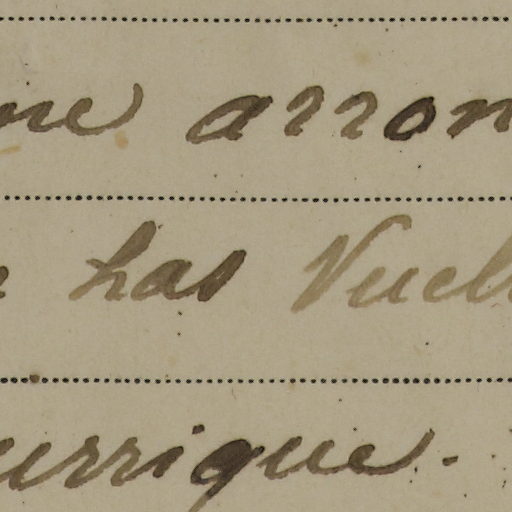 ne arron
has Vuel
urrique.